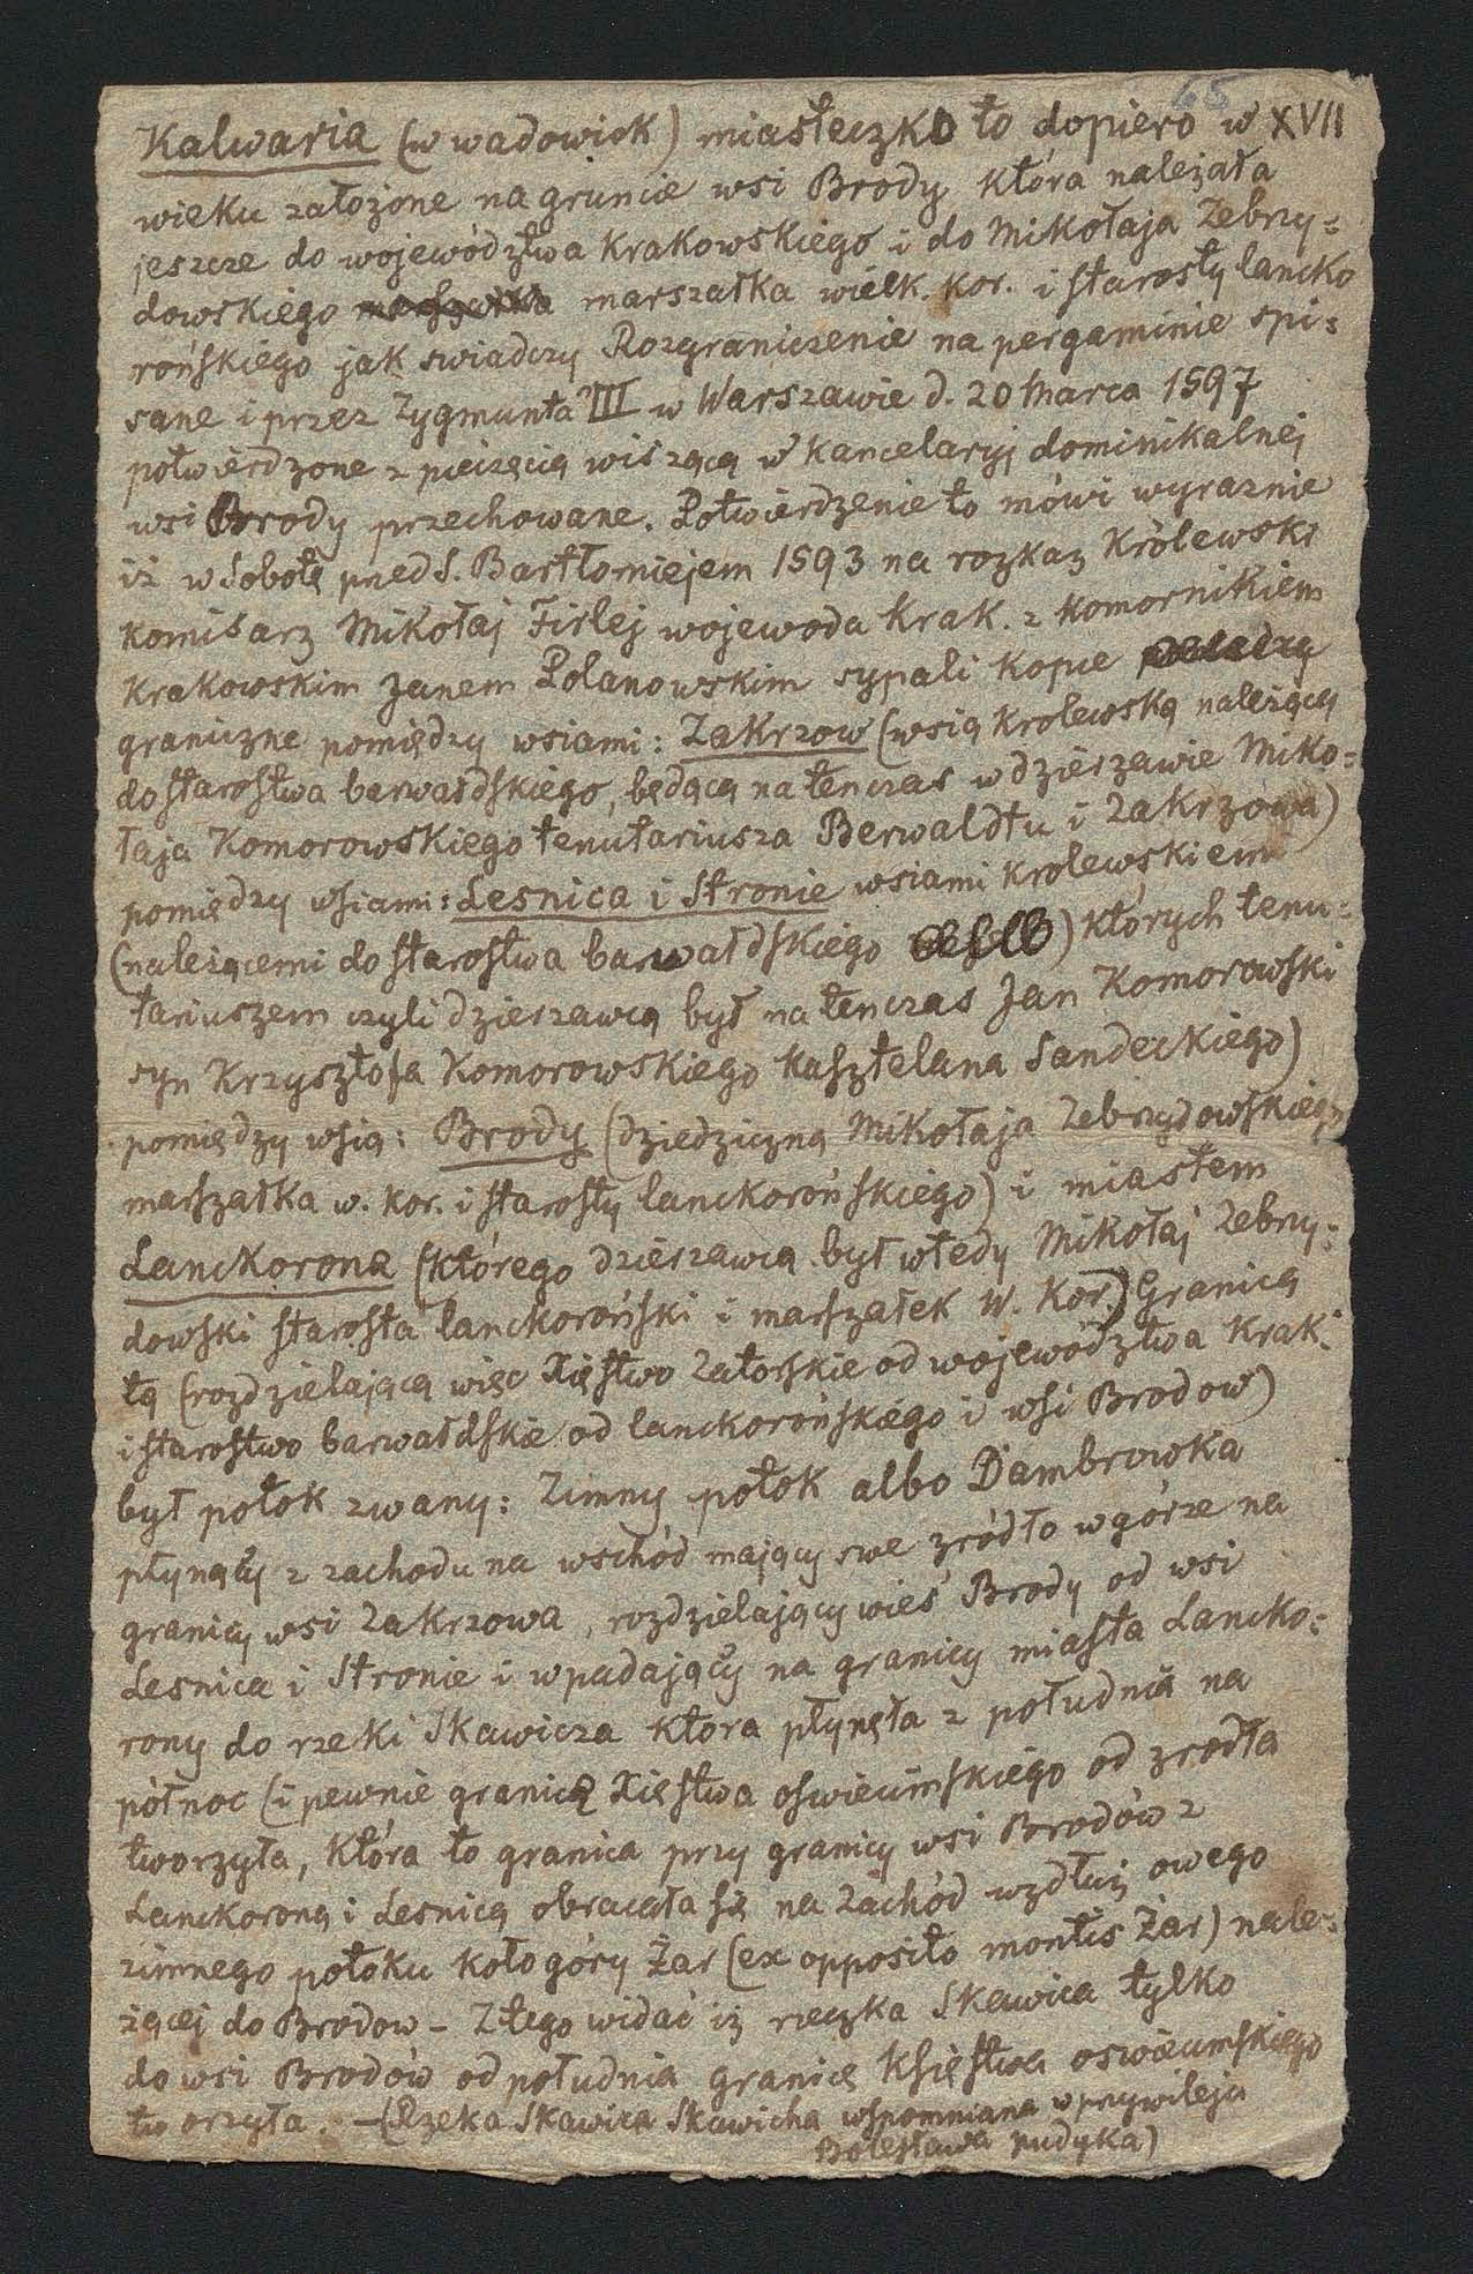 65
Kalwaria (w wadowick) miasteczko to dopiero w XVII
wieku założone na gruncie wsi Brody która należała
jeszcze do województwa Krakowskiego i do Mikołaja Zebrzy=
dowskiego marszałka wielk. kor. i starosty lancko
rońskiego jak swiadczy Rozgraniczenie na pergaminie spi=
sane i przez Zygmunta III w Warszawie d. 20 Marca 1597
potwierdzone z pieczęcią wiszącą w Kancelaryj dominikalnej
wsi Brody przechowane. Potwierdzenie to mówi wyraznie
iż w Sobotę przed S. Bartłomiejem 1593 na rozkaz Królewski
komisarz Mikołaj Firlej wojewoda Krak. z komornikiem
Krakowskim Janem Polanowskim sypali kopce
graniczne pomiędzy wsiami: Zakrzow (wsią krolewską należącą
do starostwa barwałdskiego, będącą na tenczas w dzierzawie Miko=
łaja Komorowskiego tenutariusza Berwaldtu i Zakrzowa)
pomiędzy wsiami: Lesnica i Stronie wsiami krolewskiemi
(należącemi do starostwa barwałdskiego) których tenu=
tariuszem czyli dzierzawcą był na tenczas Jan Komorowski
syn Krzysztofa Komorowskiego kasztelana Sandeckiego)
pomiędzy wsią: Brody (dziedziczną Mikołaja Zebrzydowskiego
marszałka w. kor. i starosty lanckorońskiego) i miastem
Lanckorona (którego dzierzawcą był wtedy Mikołaj Zebrzy=
dowski starosta lanckoroński i marszałek W. Kor.) Granicą
tą (rozdzielającą więc Xięstwo Zatorskie od województwa Krak.
i starostwo barwałdskie od lanckorońskiego i wsi Brodow)
był potok zwany: Zimny potok albo Dambrowka
płynący z zachodu na wschód mający swe zródło w górze na
granicy wsi Zakrzowa, rozdzielający wieś Brody od wsi
Lesnica i Stronie i wpadający na granicy miasta Lancko=
rony do rzeki Skawicza która płynęła z południa na
północ (i pewnie granicę Xięstwa oswiecimskiego od zrodła
tworzyła, która to granica przy granicy wsi Brodów z
Lanckoroną i Lesnicą obracała się na zachód wzdłuż owego
zimnego potoku koło góry Żar (ex opposito montis Żar) nale=
żącej do Brodow – Z tego widać iż rzeczka Skawica tylko
do wsi Brodów od południa granicę Księstwa oswiecimskiego
tworzyła. – (Rzeka Skawica Skawicha wspomniana w przywileju
Bolesława pudyka)